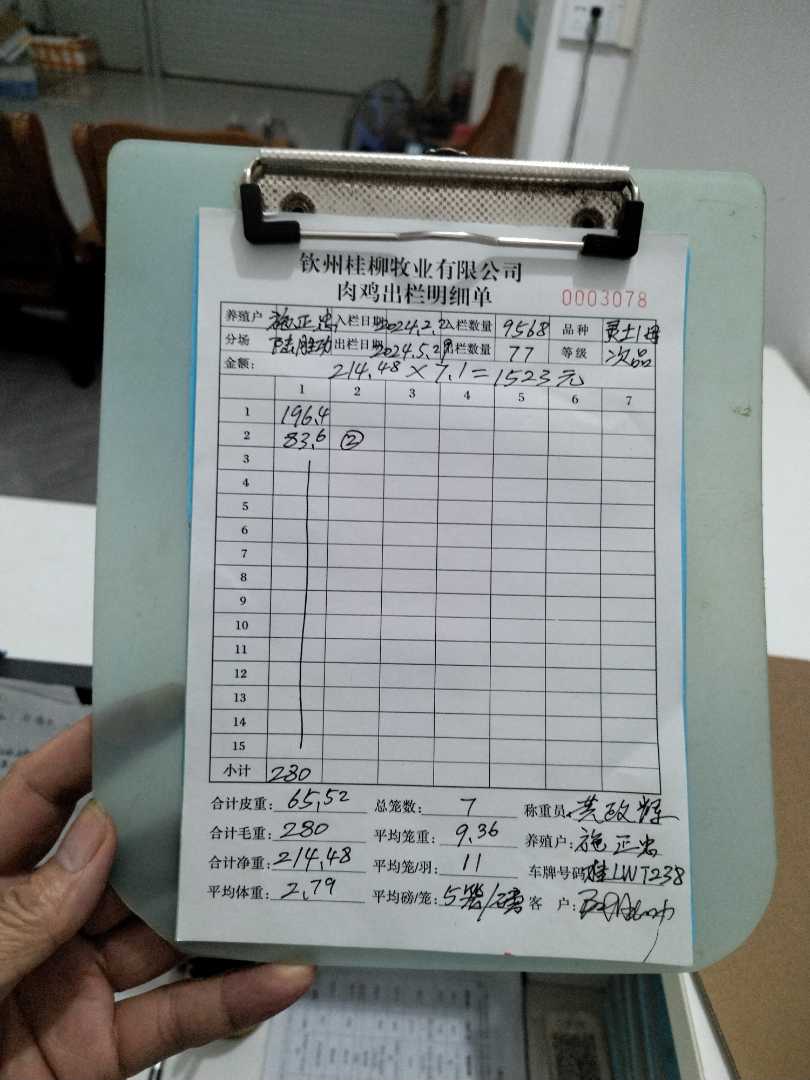 钦州桂柳牧业有限公司
肉鸡出栏明细单 0003078
养殖户 施正忠 入栏日期 2024.2.2 入栏数量 9568 品种
分场 出栏日期 2024.5.29 出栏数量 77 等级 次品
金额: 214.48×7.1=1523元
1 2 3 4 5 6 7
1 196.4
2 83.6 ②
3
4
5
6
7
8
9
10
11
12
13
14
15
小计 280
合计皮重: 65.52 总笼数: 7 称重员:
合计毛重: 280 平均笼重: 9.36 养殖户: 施正忠
合计净重: 214.48 平均笼/羽: 11 车牌号码 桂LWT238
平均体重: 2.79 平均磅/笼: 客 户: